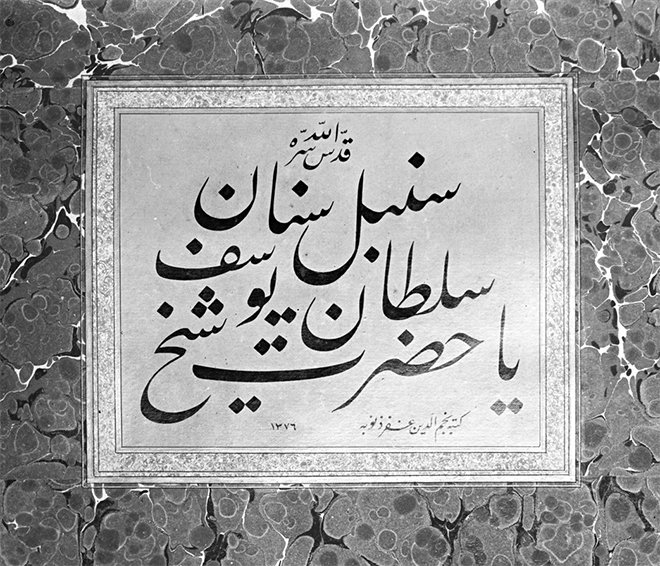 قدّس اللّه سرّه
سنبل سنان
سلطان يوسف
يا حضرت شيخ
كتبه نجم الدين غفر ذنوبه ١٣٧٦